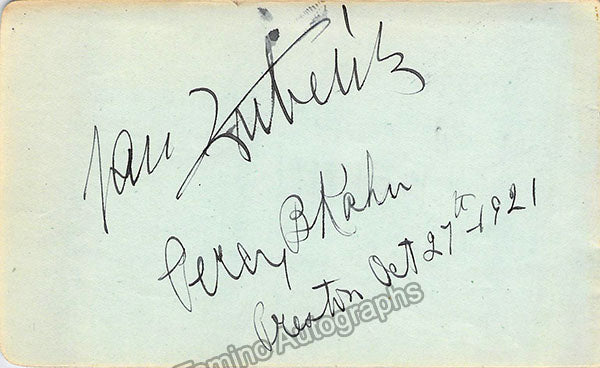 Jan Kubelik
Percy B Kahn
Preston Oct 27th 1921
Tamino Autographs